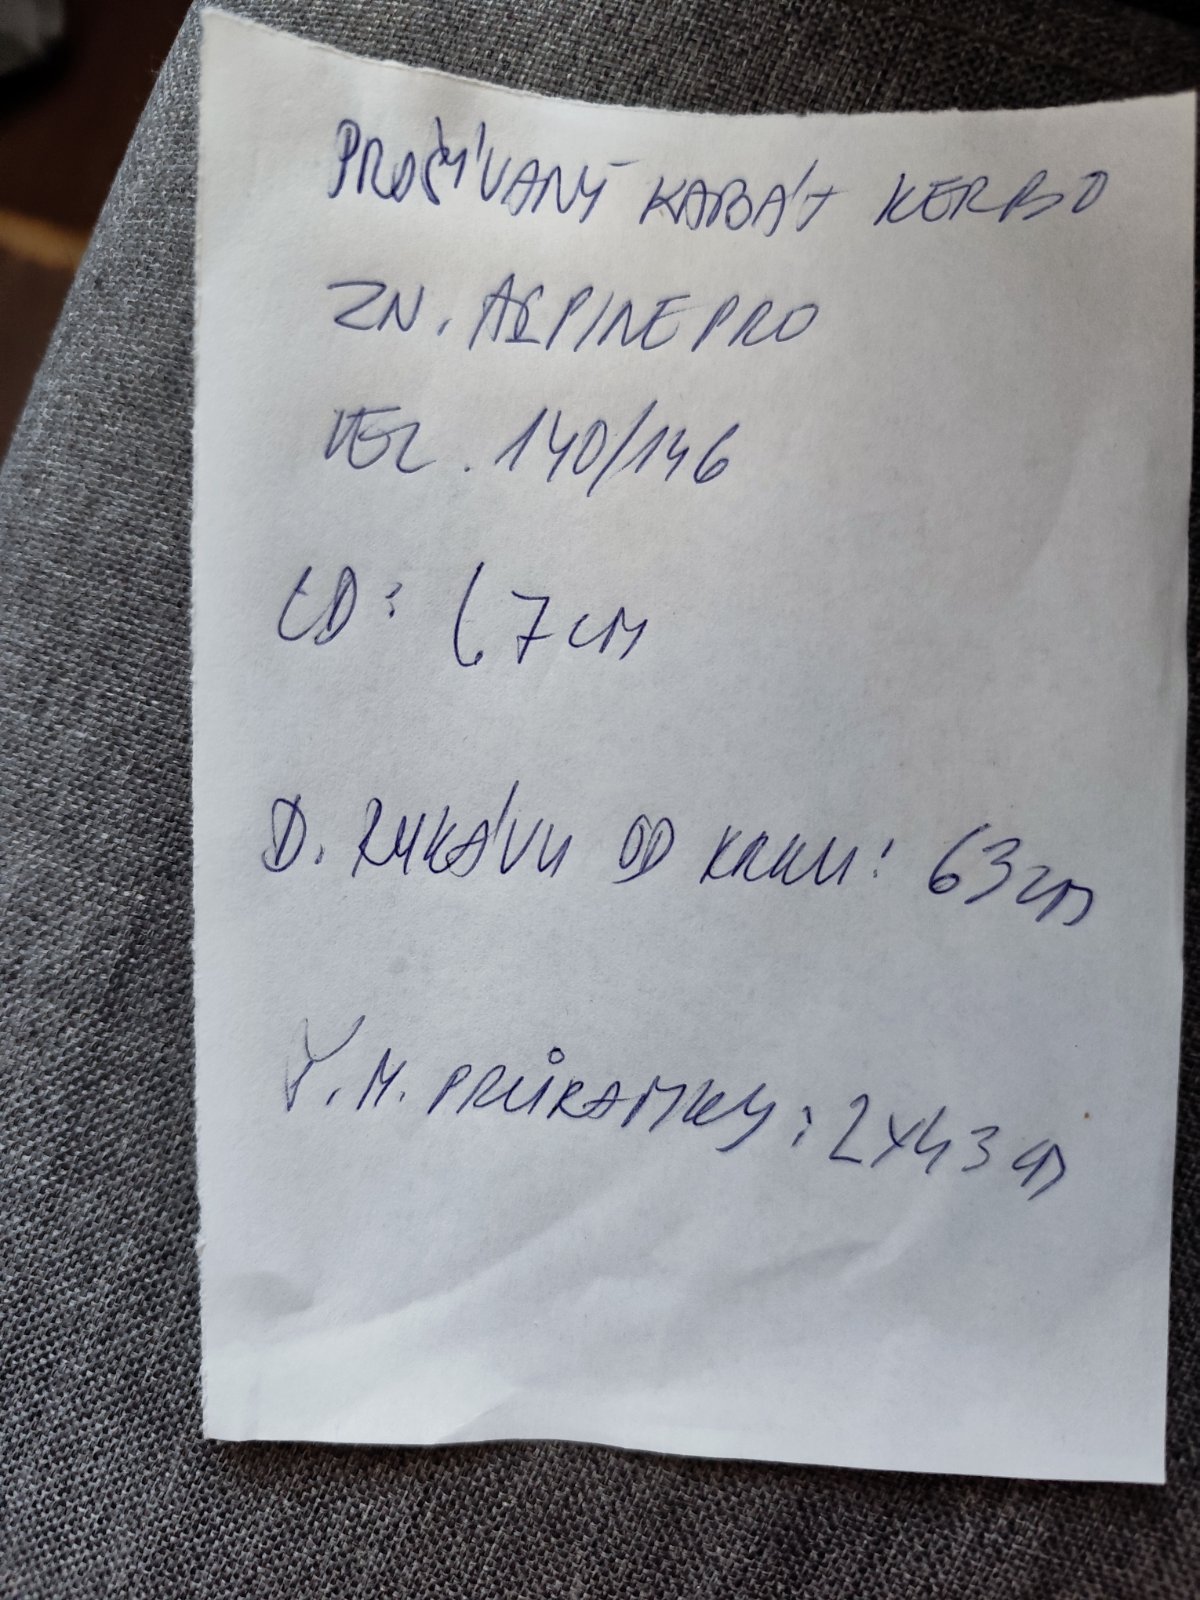 PROŠÍVANÝ KABÁT KERBO
ZN. ALPINE PRO
VEL. 140/146
CD: 67 CM
D. RUKÁVU OD KRKU: 63 cm
Š. M. PRŮRAMKY: 2x43 cm